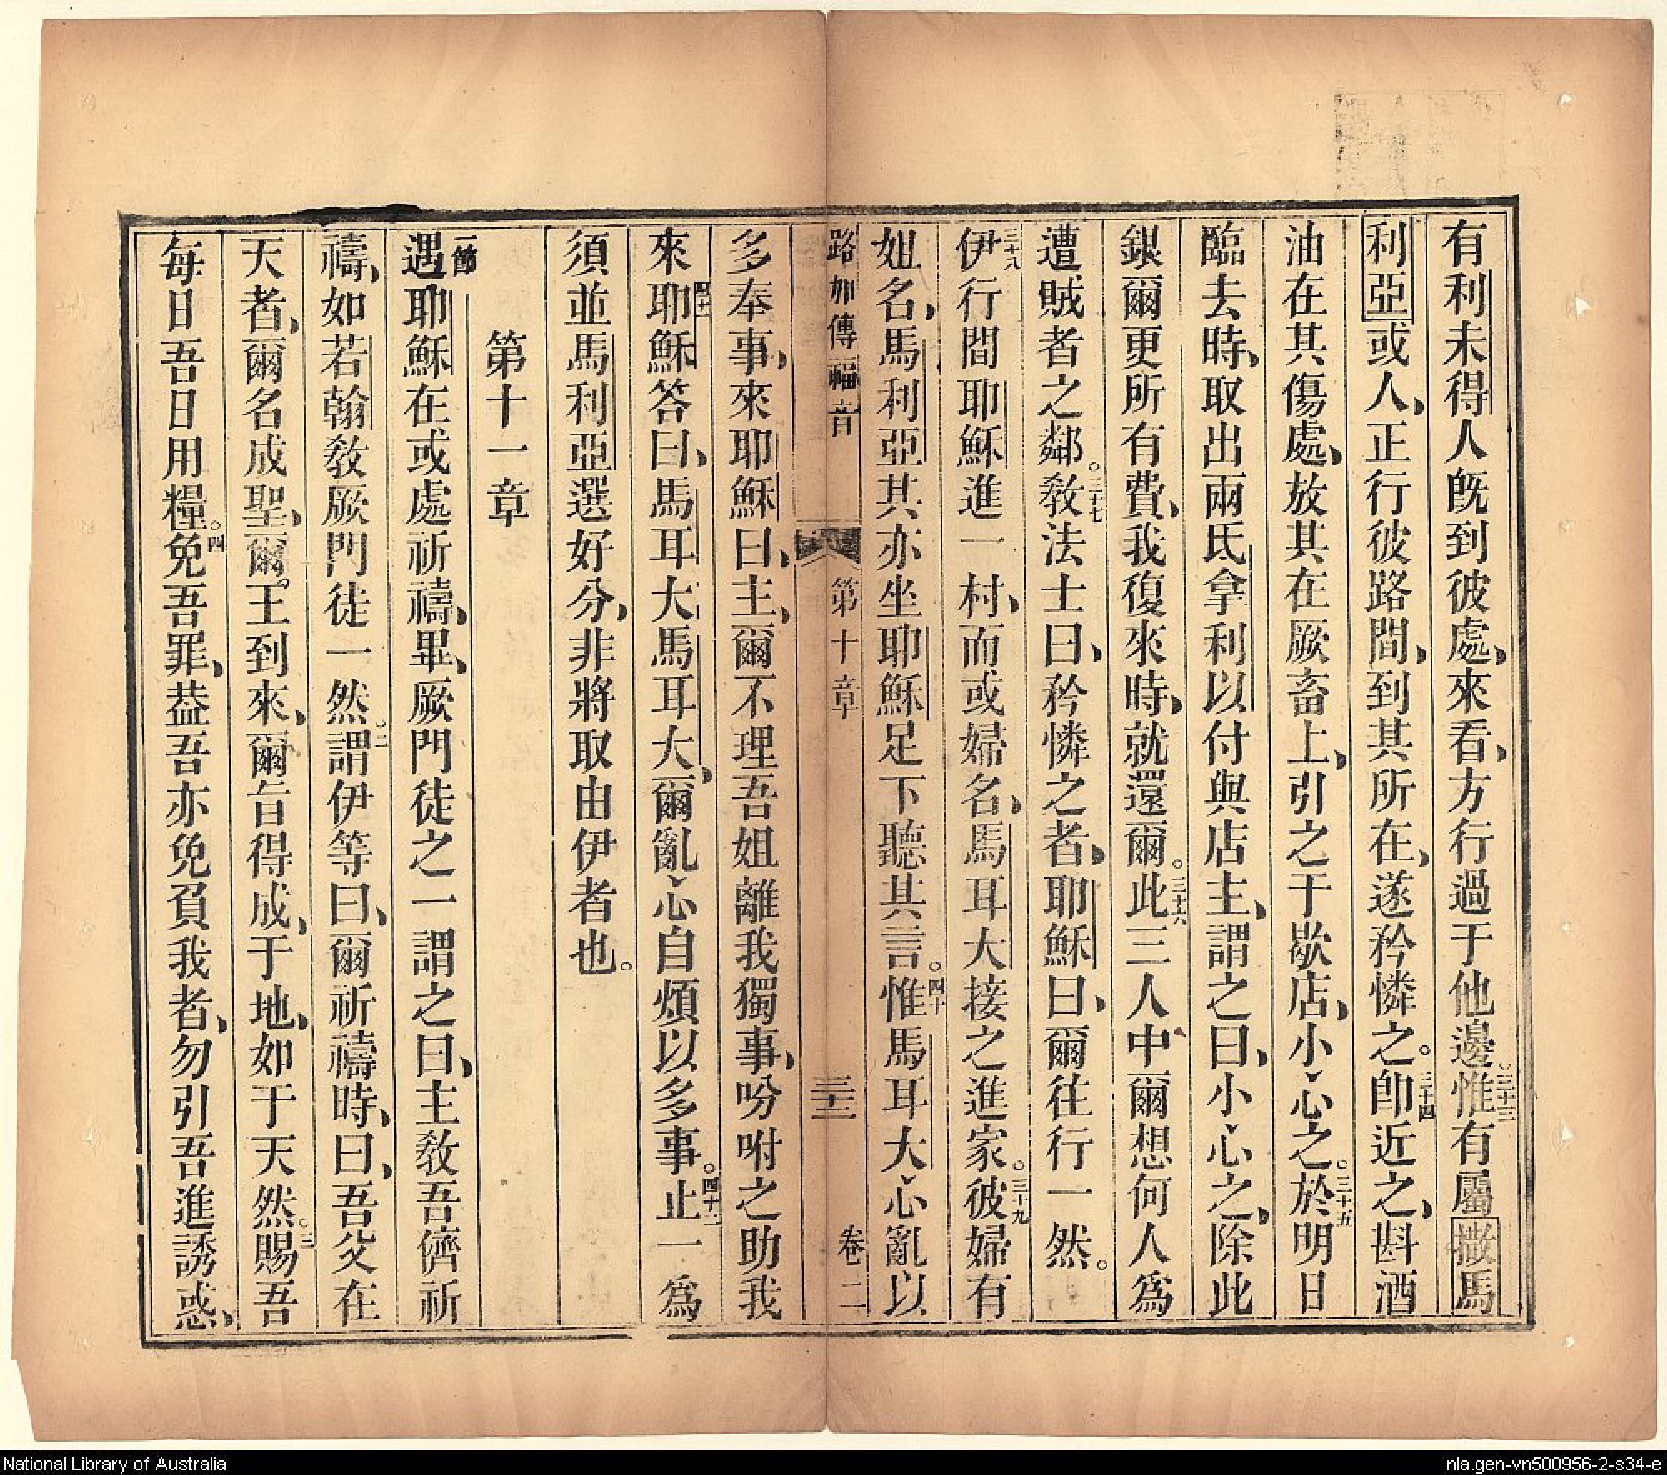 有利未得人旣到彼處、來看、方行過于他邊。三十三惟有屬撒馬
利亞或人、正行彼路間、到其所在、遂矜憐之。三十四卽近之、斟酒
油在其傷處、放其在厥畜上、引之于歇店、小心之。三十五於明日
臨去時、取出兩氐拿利以付與店主、謂之曰、小心之、除此
銀爾更所有費、我復來時、就還爾。三十六此三人中爾想何人爲
遭賊者之鄰。三十七敎法士曰、矜憐之者、耶穌曰、爾往行一然。
三十八伊行間耶穌進一村、而或婦名、馬耳大接之進家。三十九彼婦有
姐名、馬利亞其亦坐耶穌足下聽其言。四十惟馬耳大心亂以
路加傳福音 第十章 三十二 卷二
多奉事、來耶穌曰、主、爾不理吾姐離我獨事、吩咐之助我
來四十一耶穌答曰、馬耳大馬耳大、爾亂心自煩以多事。四十二止一爲
須並馬利亞選好分、非將取由伊者也。
第十一章
一節遇耶穌在或處祈禱、畢、厥門徒之一謂之曰、主敎吾儕祈
禱、如若翰敎厥門徒一然。二謂伊等曰、爾祈禱時、曰、吾父在
天者、爾名成聖、爾王到來、爾旨得成、于地、如于天然。三賜吾
每日吾日用糧。四免吾罪、葢吾亦免負我者、勿引吾進誘惑、
National Library of Australia
nla.gen-vn500956-2-s34-e